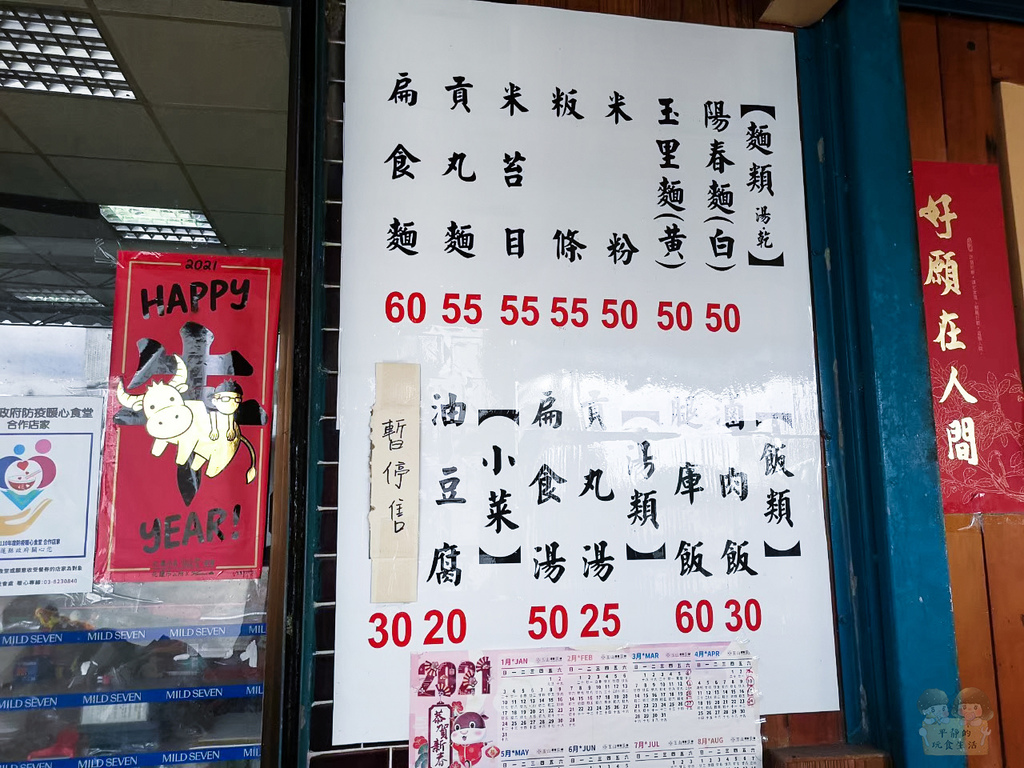 【麵類 湯乾】
陽春麵(白) 50
玉里麵(黃) 50
米粉 50
粄條 55
米苔目 55
貢丸麵 55
扁食麵 60
【飯類】
滷肉飯 30
腿庫飯 60
【湯類】
貢丸湯 25
扁食湯 50
【小菜】
油豆腐 20
暫停售 30
2021
HAPPY
牛
YEAR!
政府防疫暖心食堂
合作店家
MILD SEVEN MILD SEVEN MILD SEVEN MIL
MILD SEVEN MILD SEVEN MILD SEVEN
MILD SEVEN MILD SEVEN MILD SEVEN
好願在人間
2021
恭賀新春
1月 JAN
2月 FEB
3月 MAR
4月 APR
5月 MAY
6月 JUN
7月 JUL
8月 AUG
平靜的
玩食生活